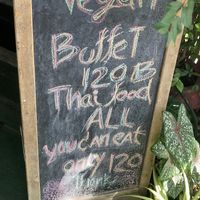 Vegan
Buffet
120B
That food
ALL
you can eat
only 120
Thank